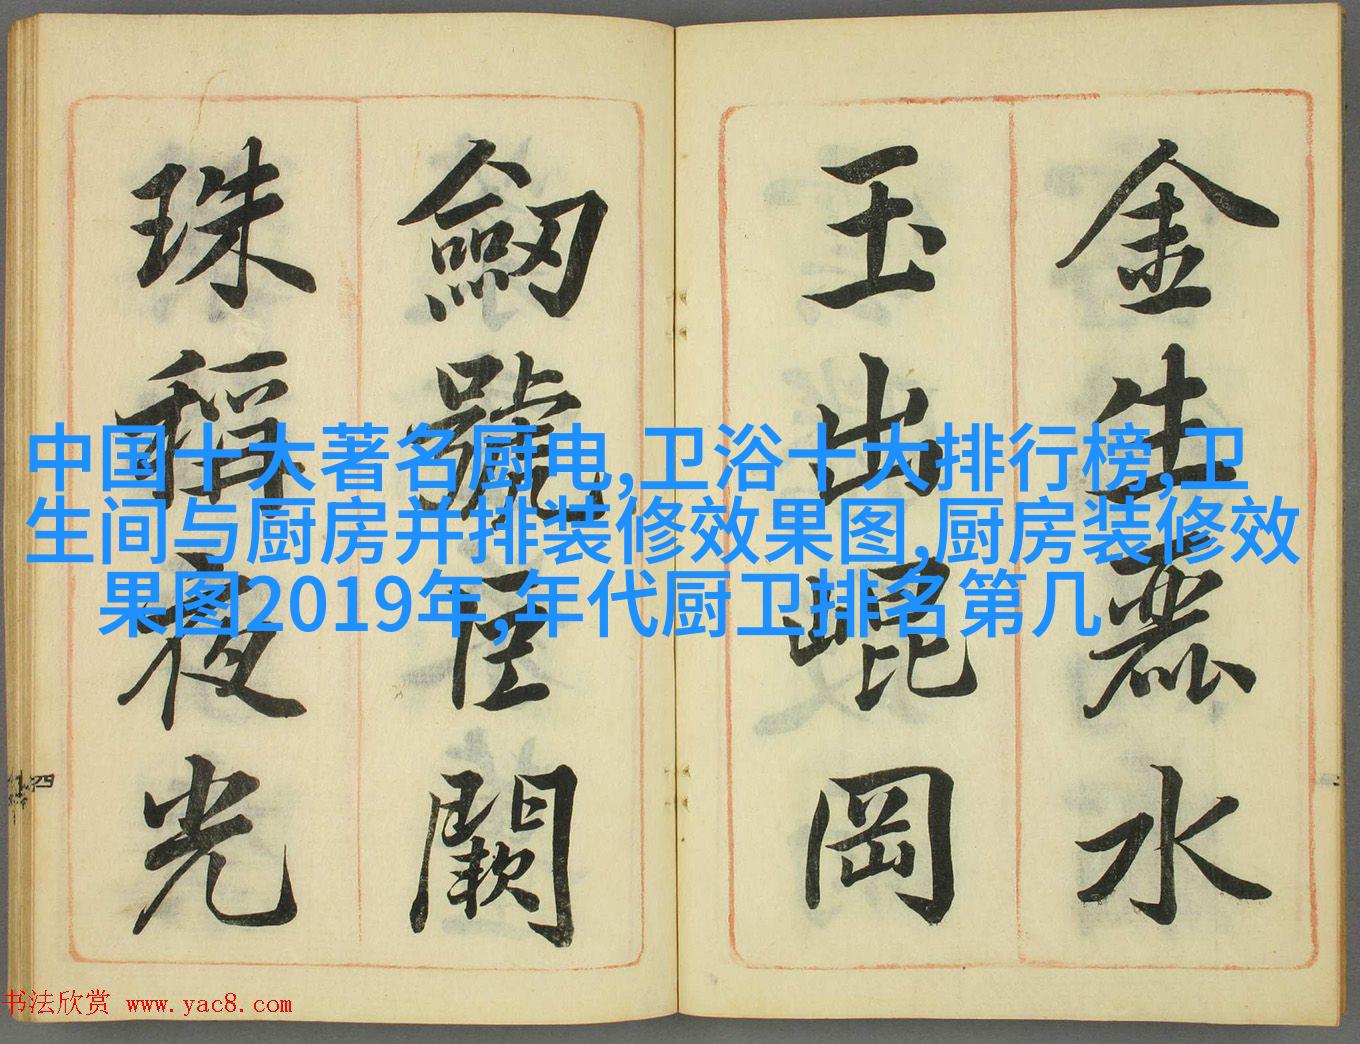 金生麗水
玉出崐岡
劒號巨闕
珠稱夜光
中国十大著名厨电,卫浴十大排行榜,卫
生间与厨房并排装修效果图,厨房装修效
果图2019年,年代厨卫排名第几
四
书法欣赏 www.yac8.com